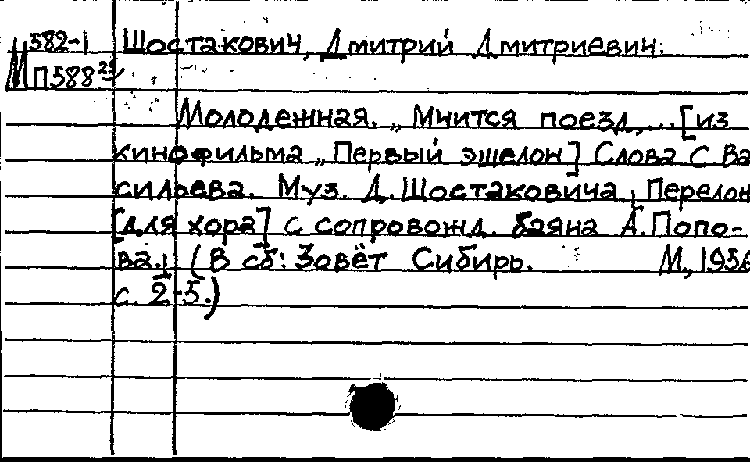 М 582-1 Шостакович, Дмитрий Дмитриевич.
П588²⁵
Молодежная. „Мчится поезд,... [из
кинофильма „Первый эшелон] Слова С Ва
сильева. Муз. Д. Шостаковича, Перелож
[для хора] с сопровожд. баяна А. Попо-
ва. (В сб: Зовёт Сибирь. М., 1956
с. 2-5.)